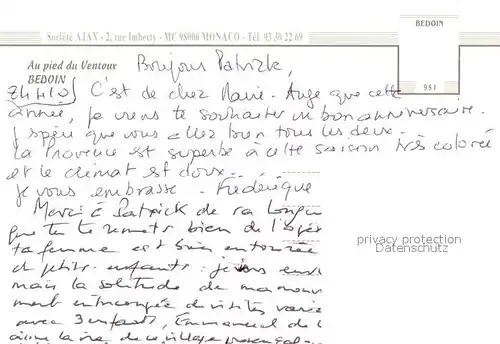 BEDOIN
Société AJAX - 2, rue Imberty - MC 98000 MONACO - Tél. 93 30 22 69
Au pied du Ventoux
BEDOIN
951
Bonjour Patrick,
C'est de chez Marie-Ange que cette
année, je viens te souhaiter un bon anniversaire.
J'espère que vous allez bien tous les deux.
La Provence est superbe à cette saison très colorée
et le climat est doux...
Je vous embrasse. Frédérique
Merci à Patrick de sa longue
que tu te remets bien de l'opér
ta femme est bien entourée
et petits-enfants : je
mais la solitude de
ment entrecoupée de visites
avec 3 enfants, Emmanuel de
la vie de ce village provençal
privacy protection
Datenschutz